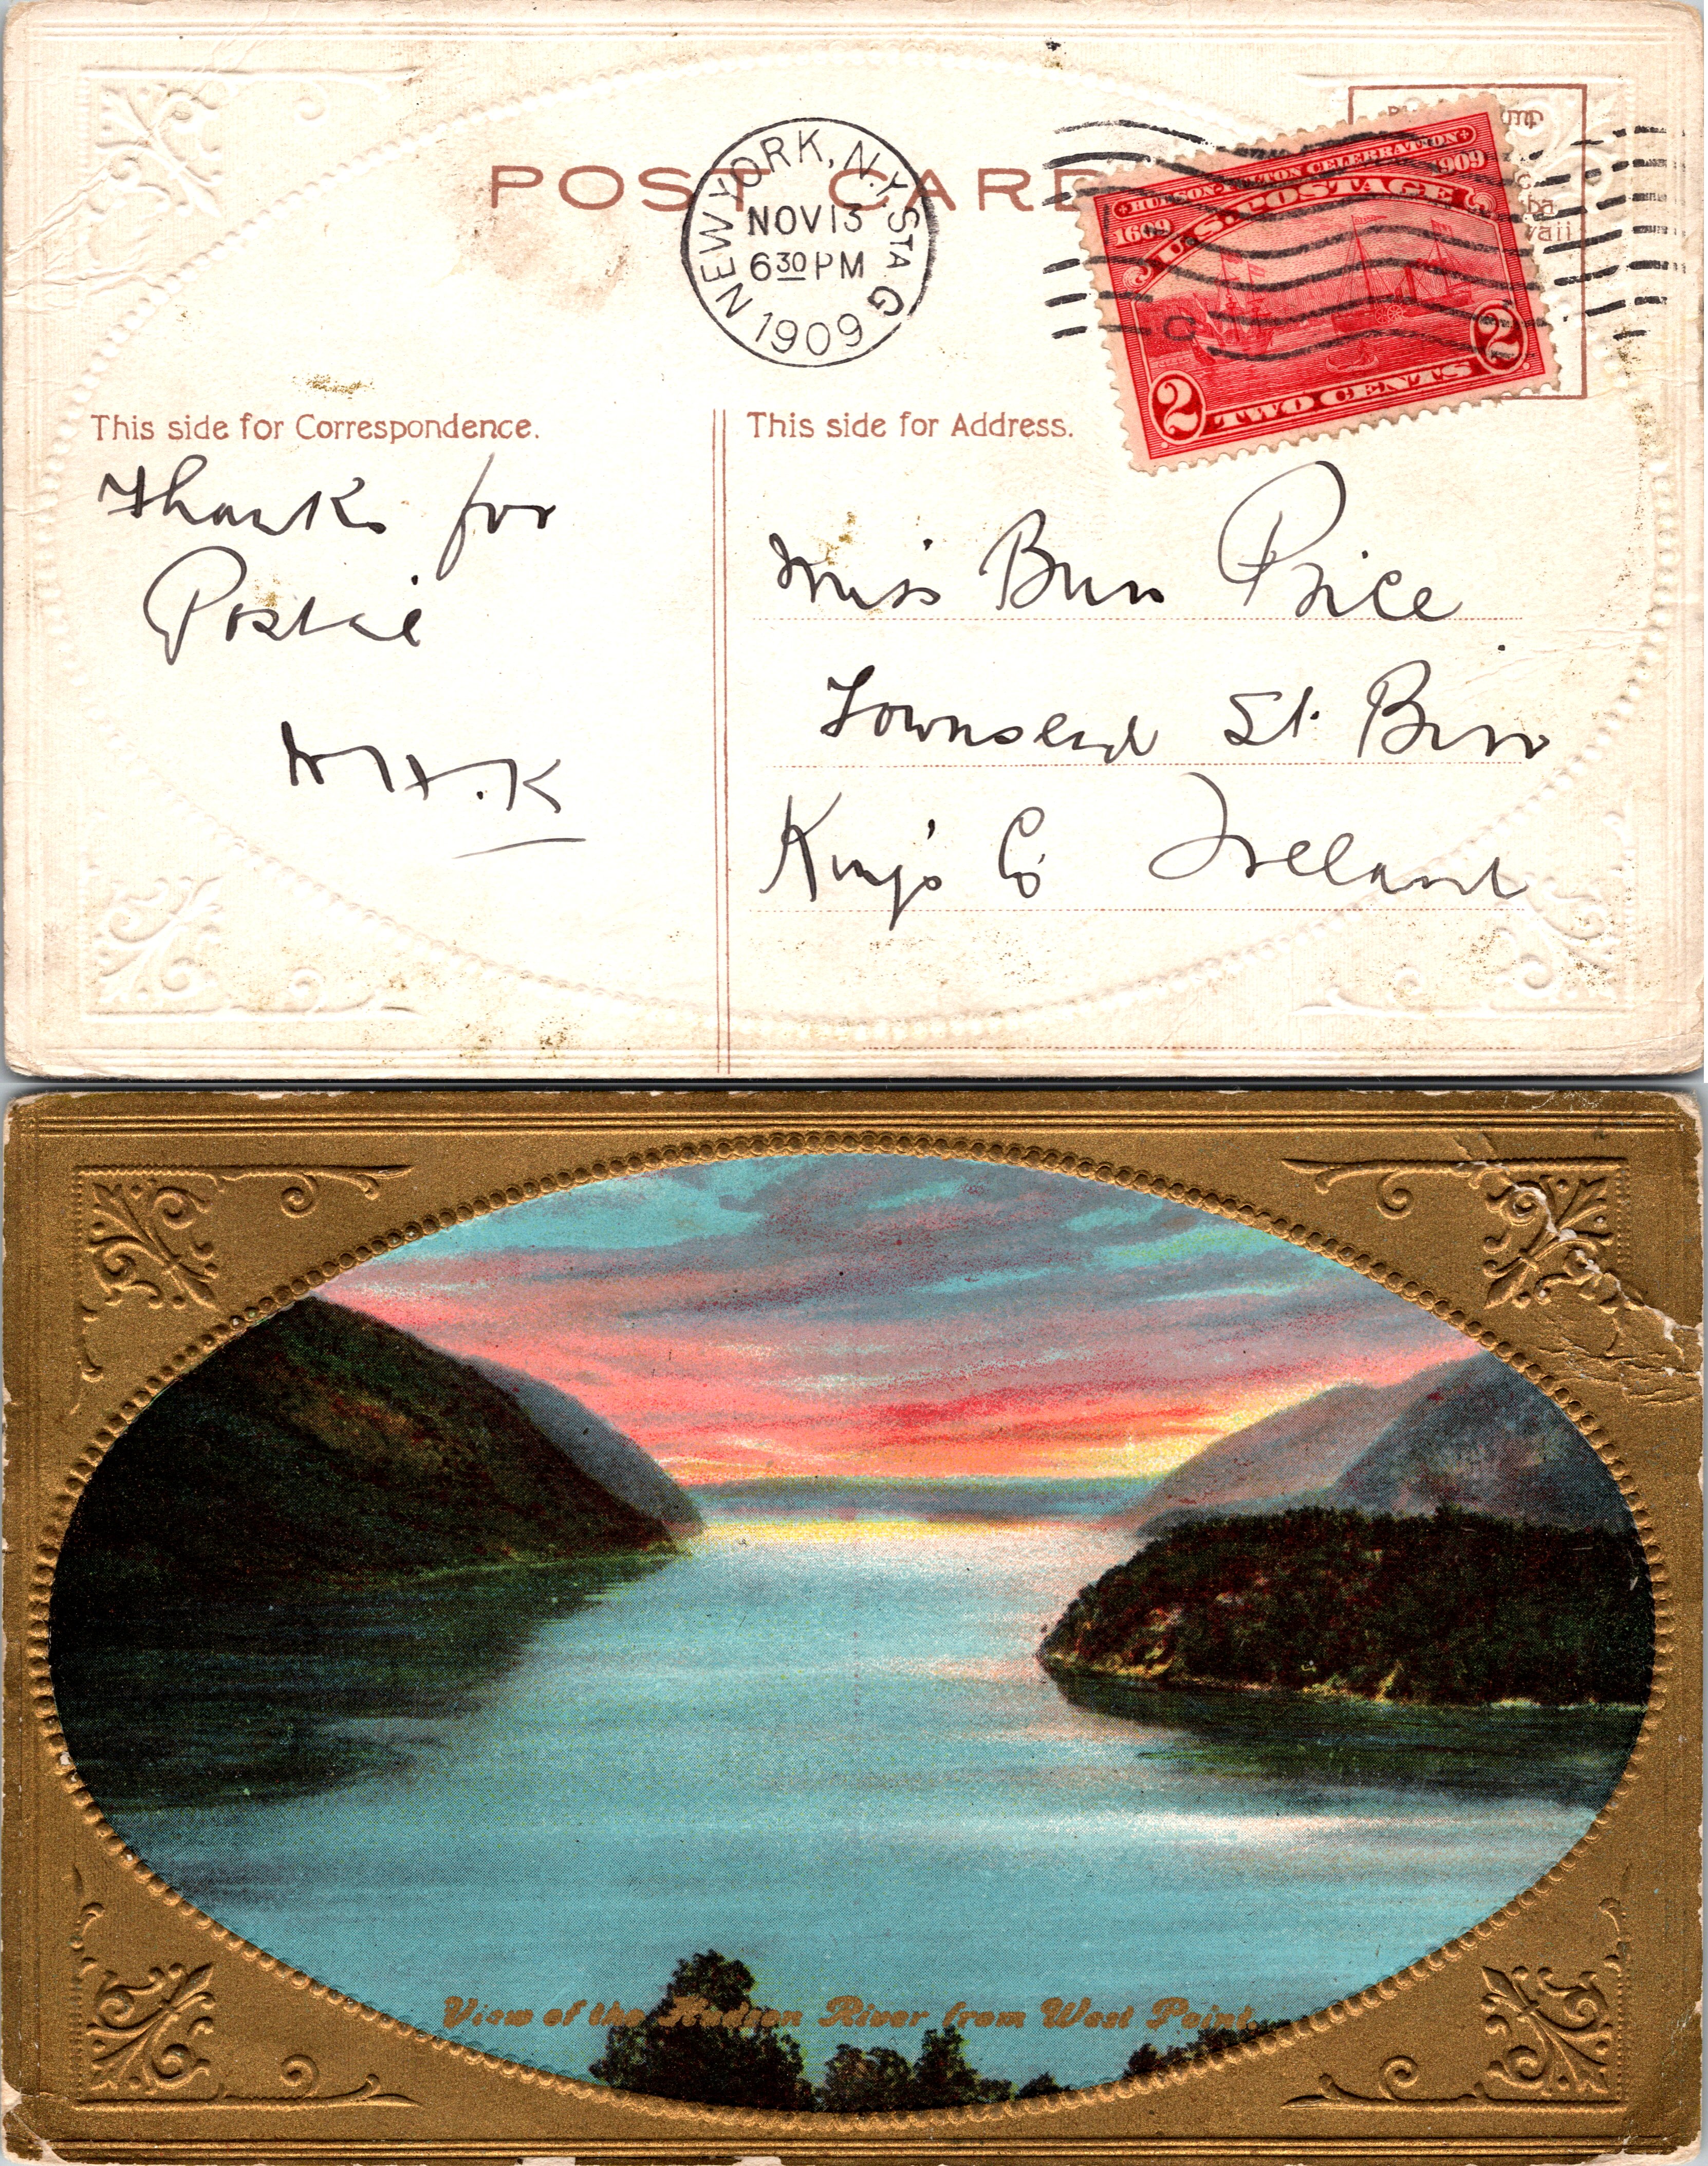 POST CARD
NEW YORK, N.Y. STA G
NOV 13
6 30 PM
1909
HUDSON-FULTON CELEBRATION
1609 1909
U.S. POSTAGE
2 TWO CENTS 2
This side for Correspondence.
Thanks for
Postal
H.K
This side for Address.
Miss Price
Townsend St. Birr
King's Co Ireland
View of the Hudson River from West Point.